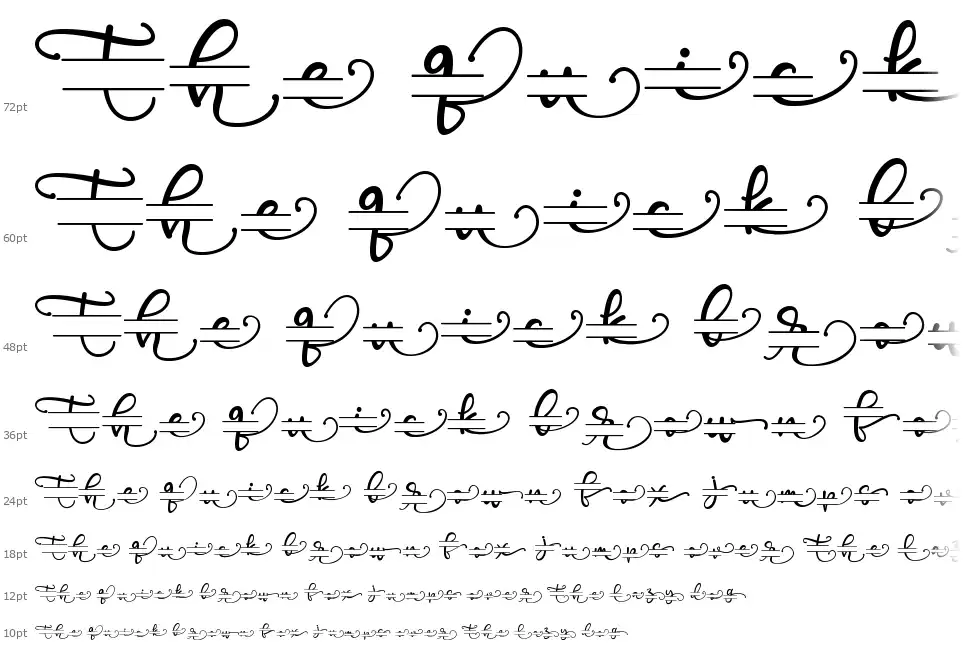 72pt The quick
60pt The quick b
48pt The quick brow
36pt The quick brown fo
24pt The quick brown fox jumps ov
18pt The quick brown fox jumps over The laz
12pt The quick brown fox jumps over The lazy dog
10pt The quick brown fox jumps over The lazy dog